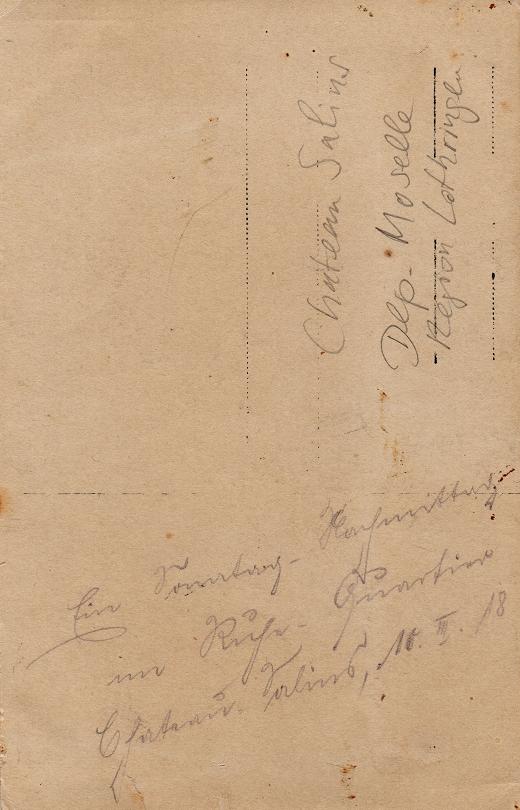 Chateau Salins
Dep. Moselle
Region Lothringen
Ein Sonntag-Nachmittag
im Ruhe-Quartier
Chateau-Salins, 10. II. 18